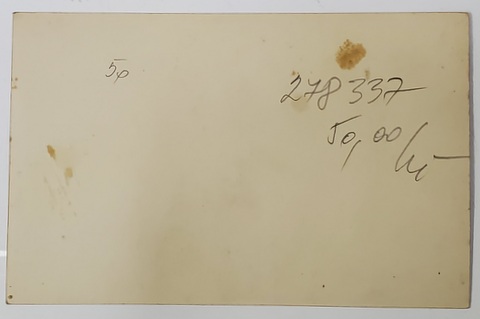 50
278 337
50,00